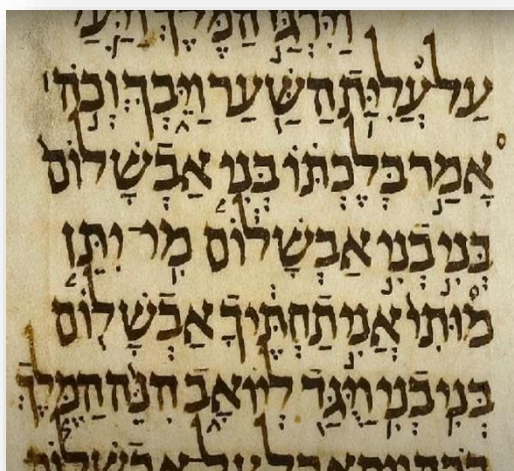 וַיִּרְגַּז הַמֶּלֶךְ וַיַּעַל
עַל עֲלִיַּת הַשַּׁעַר וַיֵּבְךְּ וְכֹה
אָמַר בְּלֶכְתּוֹ בְּנִי אַבְשָׁלוֹם
בְּנִי בְנִי אַבְשָׁלוֹם מִי יִתֵּן
מוּתִי אֲנִי תַחְתֶּיךָ אַבְשָׁלוֹם
בְּנִי בְנִי וַיֻּגַּד לְיוֹאָב הִנֵּה הַמֶּלֶךְ